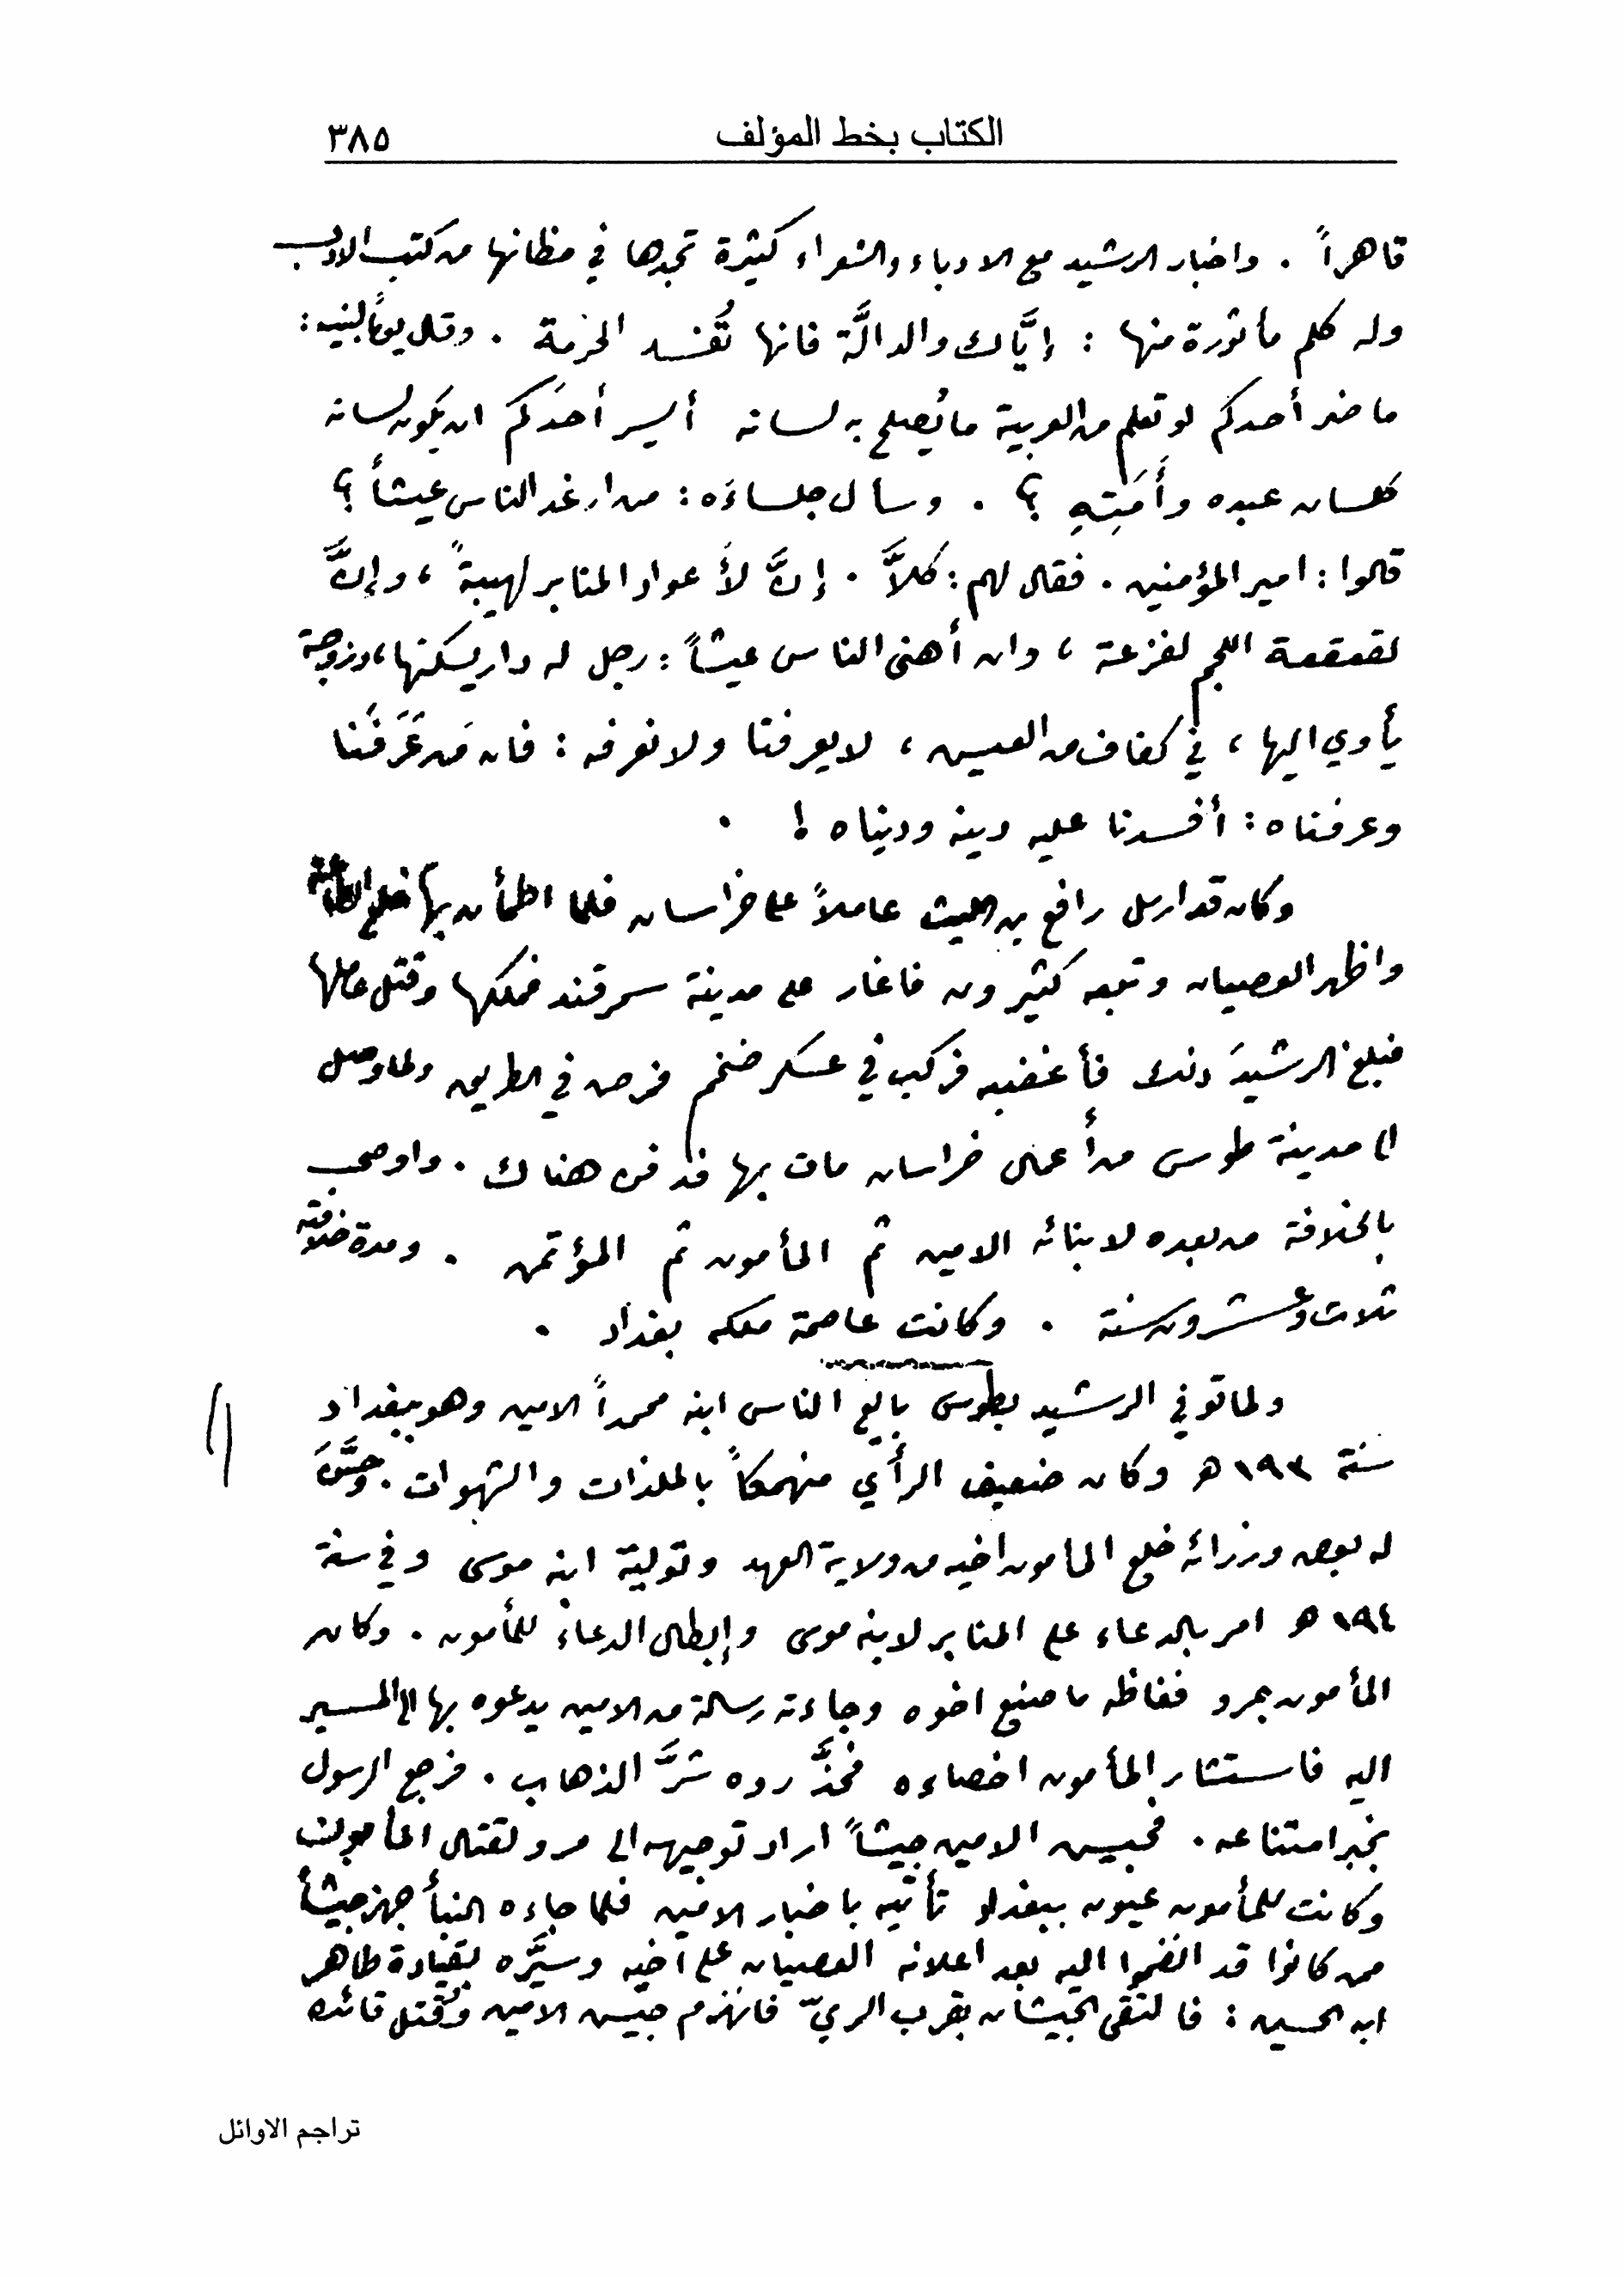 الكتاب بخط المؤلف ٣٨٥
قاهراً . واخبار الرشيد مع الادباء والشعراء كثيرة تجدها في مظانها من كتب الادب
وله كلم مأثورة منها : إيَّاك والدالَّة فانها تُفسد الحرمة . وقال يوماً لبنيه :
ما ضر أحدكم لو تعلم من العربية ما يُصلح به لسانه أيسر أحدَكم ان يكون لسانه
كلسان عبده وأَمَتِهِ ؟ . وسأل جلساءَه : من ارغد الناس عيشاً ؟
قالوا : امير المؤمنين . فقال لهم : كلاَّ . إنَّ لأعواد المنابر لهيبةً ، وإنَّ
لقعقعة اللجم لفزعة ، وان أهنى الناس عيشاً : رجل له دار يسكنها ، وزوجة
يأوي اليها ، في كفاف من العيش ، لا يعرفنا ولا نعرفه : فان مَن عَرَفَنا
وعرفناه : أفسدنا عليه دينه ودنياه ! .
وكان قد ارسل رافع بن الليث عاملاً على خراسان فلما اطمأن بها خلع الطاعة
واظهر العصيان وتبعه كثيرون فاغار على مدينة سمرقند فملكها وقتل عاملها
فبلغ الرشيدَ ذلك فأغضبه فركب في عسكر ضخم فمرض في الطريق ولما وصل
الى مدينة طوس من أعمال خراسان مات بها فدفن هناك . واوصى
بالخلافة من بعده لابنائه الامين ثم المأمون ثم المؤتمن . ومدة خلافته
ثلاث وعشرون سنة . وكانت عاصمة ملكه بغداد .
ولما توفي الرشيد بطوس بايع الناس ابنه محمداً الامين وهو ببغداد
سنة ١٩٣ هـ وكان ضعيف الرأي منهمكاً بالملذات والشهوات . وحسَّنَ
له بعض وزرائه خلع المامون اخيه من ولاية العهد وتولية ابنه موسى وفي سنة
١٩٤ هـ امر بالدعاء على المنابر لابنه موسى وإبطال الدعاء للمأمون . وكان
المأمون بمرو فغاظه ما صنع اخوه وجاءته رسالة من الامين يدعوه بها الى المسير
اليه فاستشار المأمون اخصاءه فحذَّروه شرَّ الذهاب . فرجع الرسول
بخبر امتناعه . فجيش الامين جيشاً اراد توجيهه الى مرو لقتال المأمون
وكانت للمأمون عيون ببغداد تأتيه باخبار الامين فلما جاءه النبأ جهز جيشاً
ممن كانوا قد انضموا اليه بعد اعلانه العصيان على اخيه وسيَّره بقيادة طاهر
ابن الحسين : فالتقى الجيشان بقرب الريّ فانهزم جيش الامين وقتل قائده
تراجم الاوائل